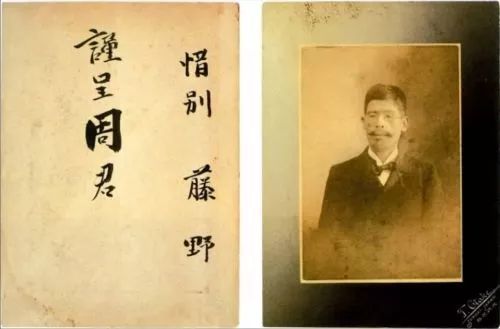 惜別 藤野
謹呈周君